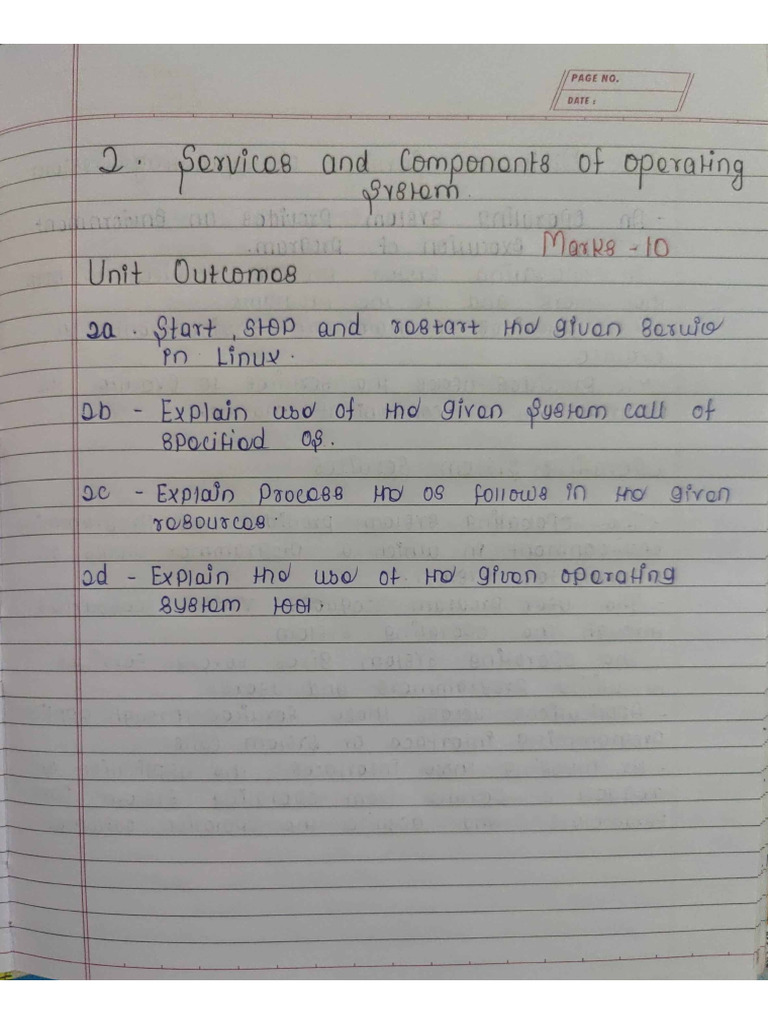 PAGE NO.
DATE :
2. Services and Components of operating
system.
Marks - 10
Unit Outcomes
2a. Start, stop and restart the given servic
in Linux.
2b - Explain use of the given system call of
specified os.
2c - Explain Process the os follows in the given
resources.
2d - Explain the use of the given operating
system tool.